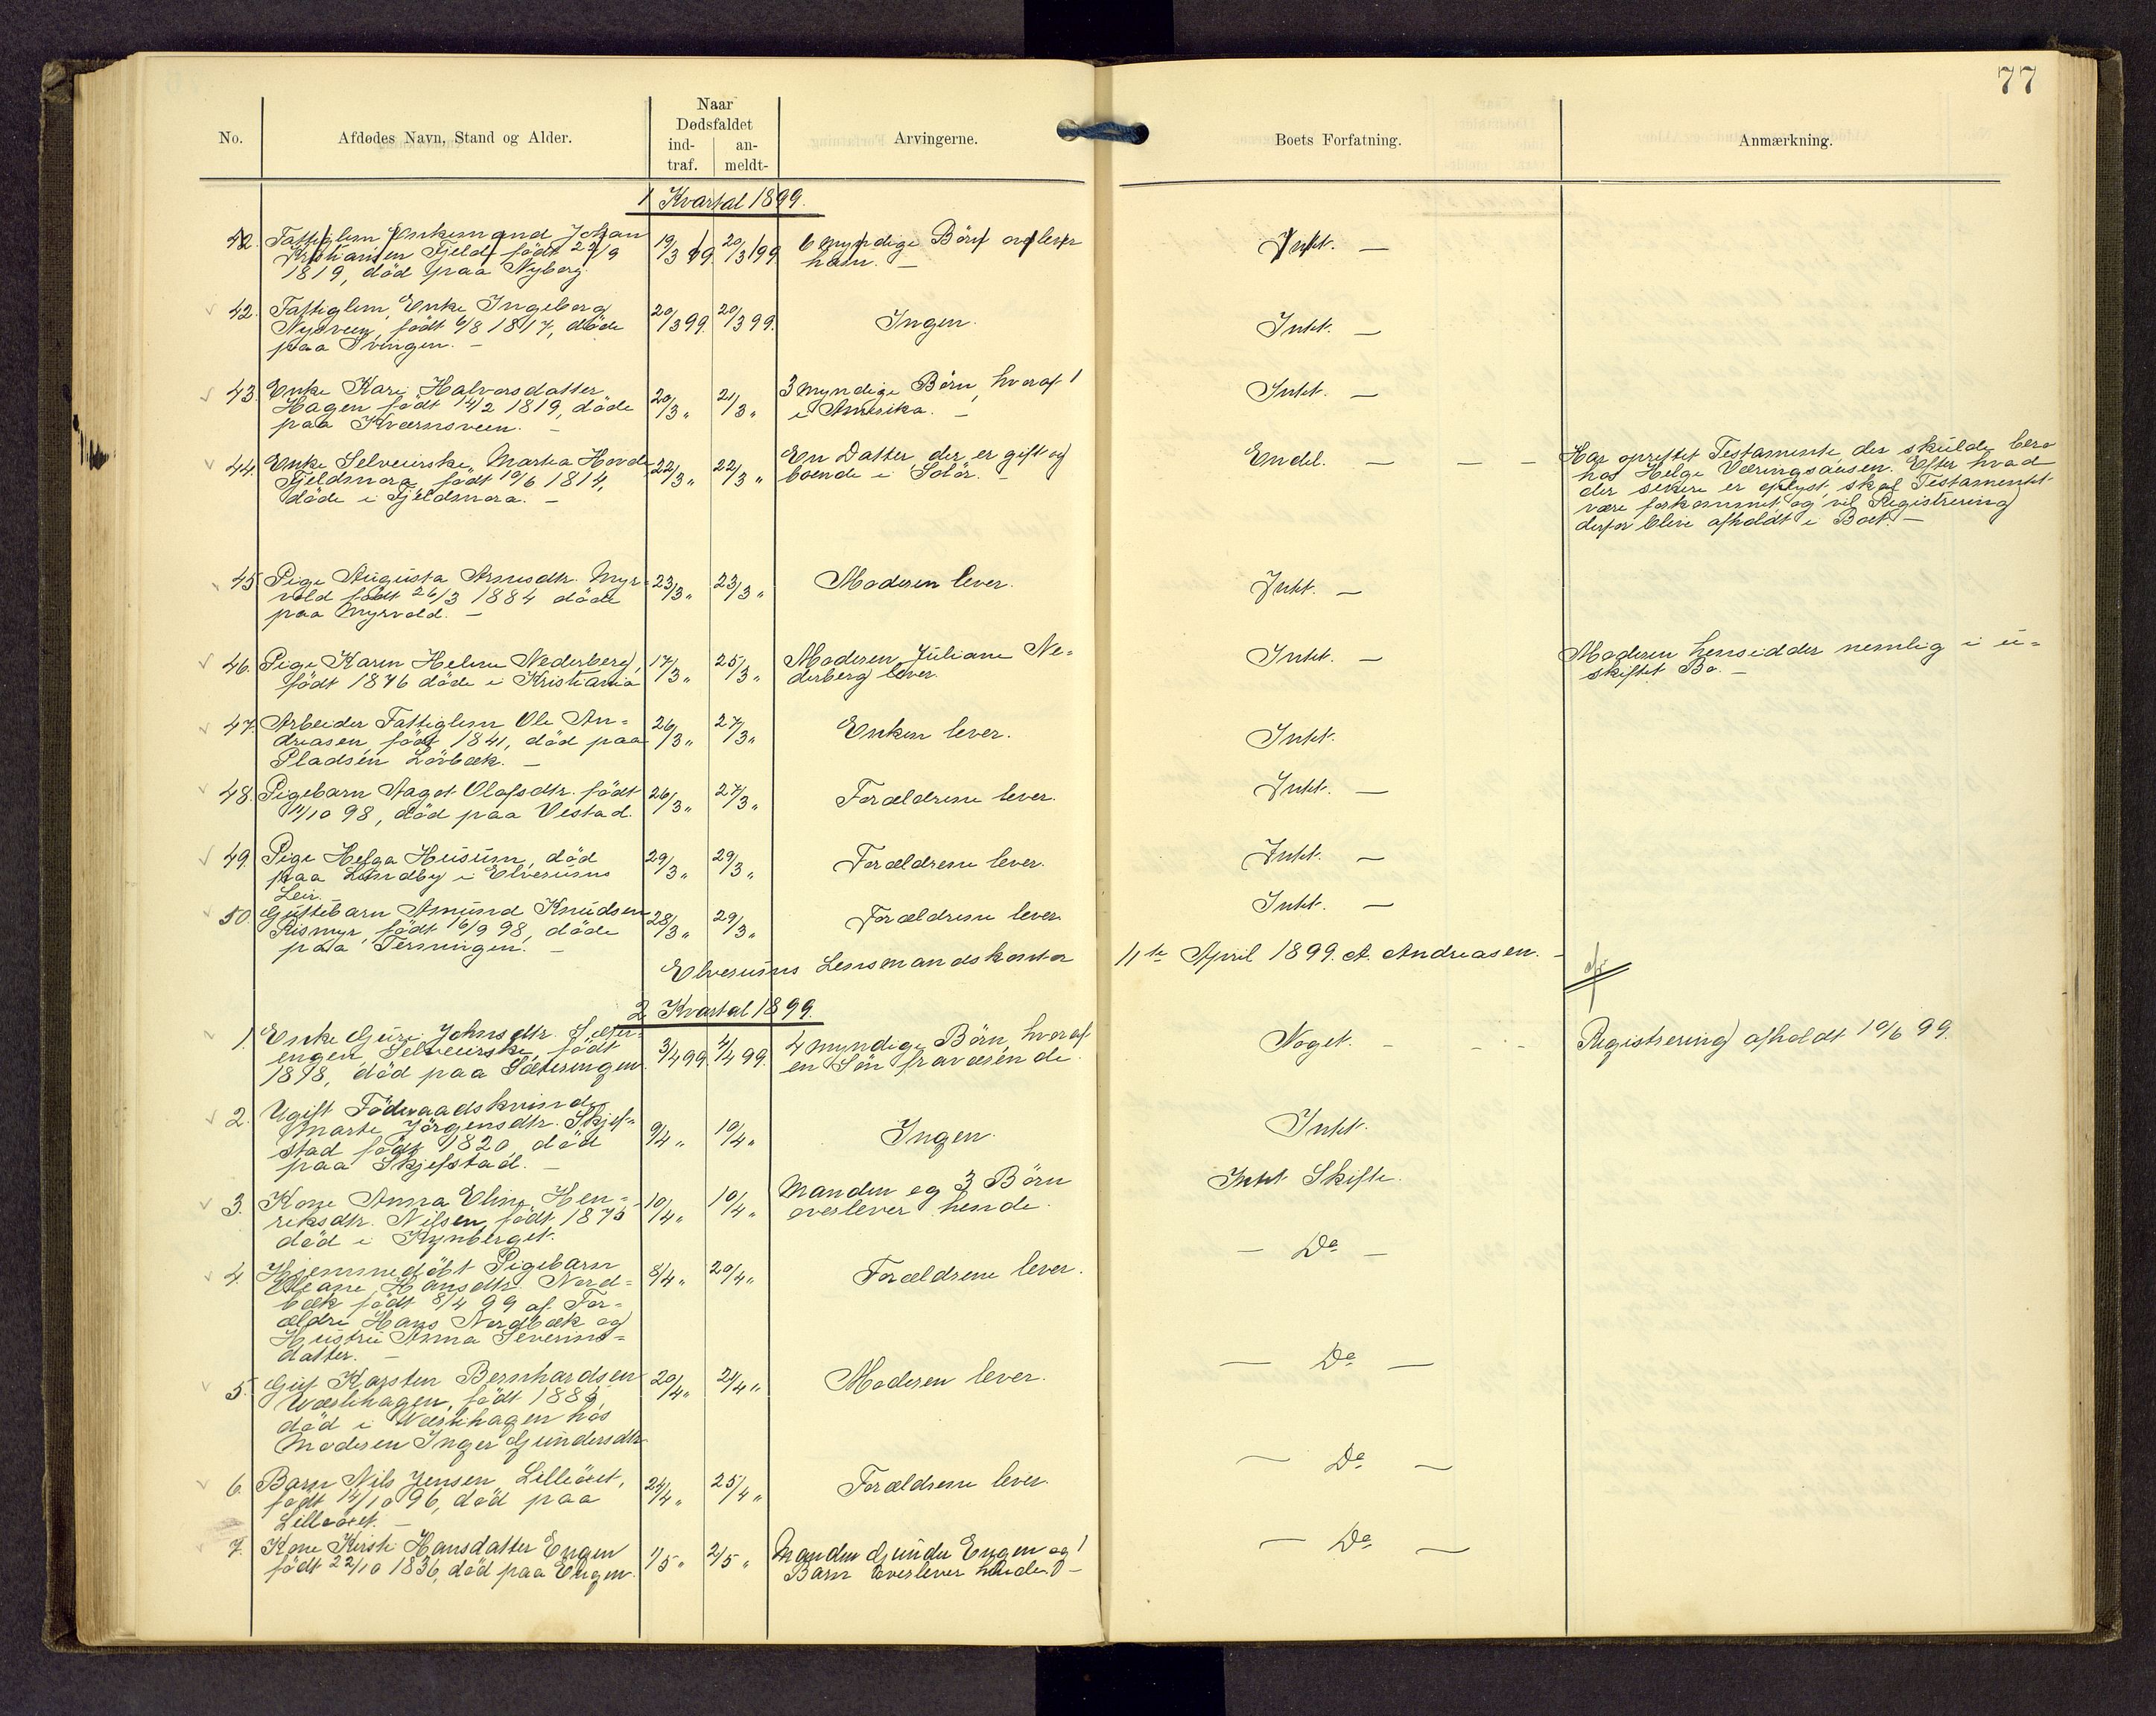 77
No.
Afdødes Navn, Stand og Alder.
Naar
Dødsfaldet
ind-
traf.
an-
meldt-
Arvingerne.
Boets Forfatning.
Anmærkning.
1 Kvartal 1899.
42. Fattiglem, Enkemand Johan 19/3 99 20/3 99 6 myndige Börn overlever Intet. —
Kristiansen Fjeld født 22/9 ham. —
1819, död paa Nyberg.
42. Fattiglem, Enke Ingeborg 20/3 99. 20/3 99. Ingen. Intet. —
Nysveen, født 6/8 1817, döde
paa Svingen. —
43. Enke Kari Halvorsdatter 20/3 „ 21/3 „ 3 myndige Börn, hvoraf 1 Intet. —
Hagen født 14/2 1819, döde i Amerika. —
paa Kværnsveen. —
44. Enke Selveierske, Martha Hovde 22/3 „ 22/3 „ En Datter der er gift og Endel. — — — Har oprettet Testamente, der skulde bero
Fjeldmora, født 10/6 1814, boende i Solör. — hos Helge Væringsaasen. Efter hvad
döde i Fjeldmora. — der senere er oplyst, skal Testamentet
være forkommet, og vil Registrering
derfor blive afholdt i Boet. —
45 Pige Augusta Arnesdtr. Myr= 23/3 „ 23/3 „ Moderen lever. Intet. —
vold født 26/3 1884 döde
paa Myrvold. —
46. Pige Karen Helene Nederberg, 17/3 „ 25/3 „ Moderen Juliane Ne= Intet. — Moderen hensidder nemlig i u=
født 1876 döde i Kristiania derberg lever. skiftet Bo. —
47. Arbeider Fattiglem Ole An= 26/3 „ 27/3 „ Enken lever. Intet.
dreasen, född 1841, död paa
Pladsen Lövbæk. —
48. Pigebarn Aagot Olafsdtr. født 26/3 „ 27/3 „ Forældrene lever. Intet. —
11/10 98, död paa Vestad.
49. Pige Helga Husum, död 29/3 „ 29/3 „ Forældrene lever. Intet. —
paa Lundby i Elverums
Leir.
50. Guttebarn Amund Knudsen 28/3 „ 29/3 „ Forældrene lever Intet. —
Rismyr, født 16/9 98, döde
paa Terningen. —
Elverums Lensmandskontor 11te April 1899. A. Andreasen. —
2 Kvartal 1899.
1 Enke Guri Johnsdtr. Sæter= 3/4 99. 4/4 99. 4 myndige Börn, hvoraf Noget. — Registrering afholdt 10/6 99.
engen, Selveierske, født en Sön fraværende.
1818, död paa Sæterengen.
2. Ugift Föderaadskvinde 9/4 „ 10/4 „ Ingen. Intet.
Marte Jörgensdtr. Skjef=
stad født 1820, död
paa Skjefstad. —
3. Kone Anna Eline Hen= 10/4 „ 10/4 „ Manden og 3 Börn Intet Skifte.
riksdtr. Nilsen, født 1875 overlever hende.
död i Kynberget.
4. Hjemmedöbt Pigebarn 8/4 „ 20/4 „ Forældrene lever. — Do —
Oleane Hansdtr. Nord=
bæk født 8/4 99 af For=
ældre Hans Nordbæk og
Hustru Anna Severins=
datter. —
5. Gut Karsten Bernhardsen 20/4 „ 24/4 „ Moderen lever. — Do —
Væslehagen, født 188
död i Væslehagen hos
Moderen Inger Gundersdtr
6. Barn Nils Jensen Lilleöset, 24/4 „ 25/4 „ Forældrene lever. — Do —
født 14/10 96, död paa
Lilleöset. —
7. Kone Kirsti Hansdatter Engen 1/5 „ 2/5 „ Manden Gunder Engen og 1 — Do —
født 22/10 1836, död paa Engen. Barn overlever hende. —